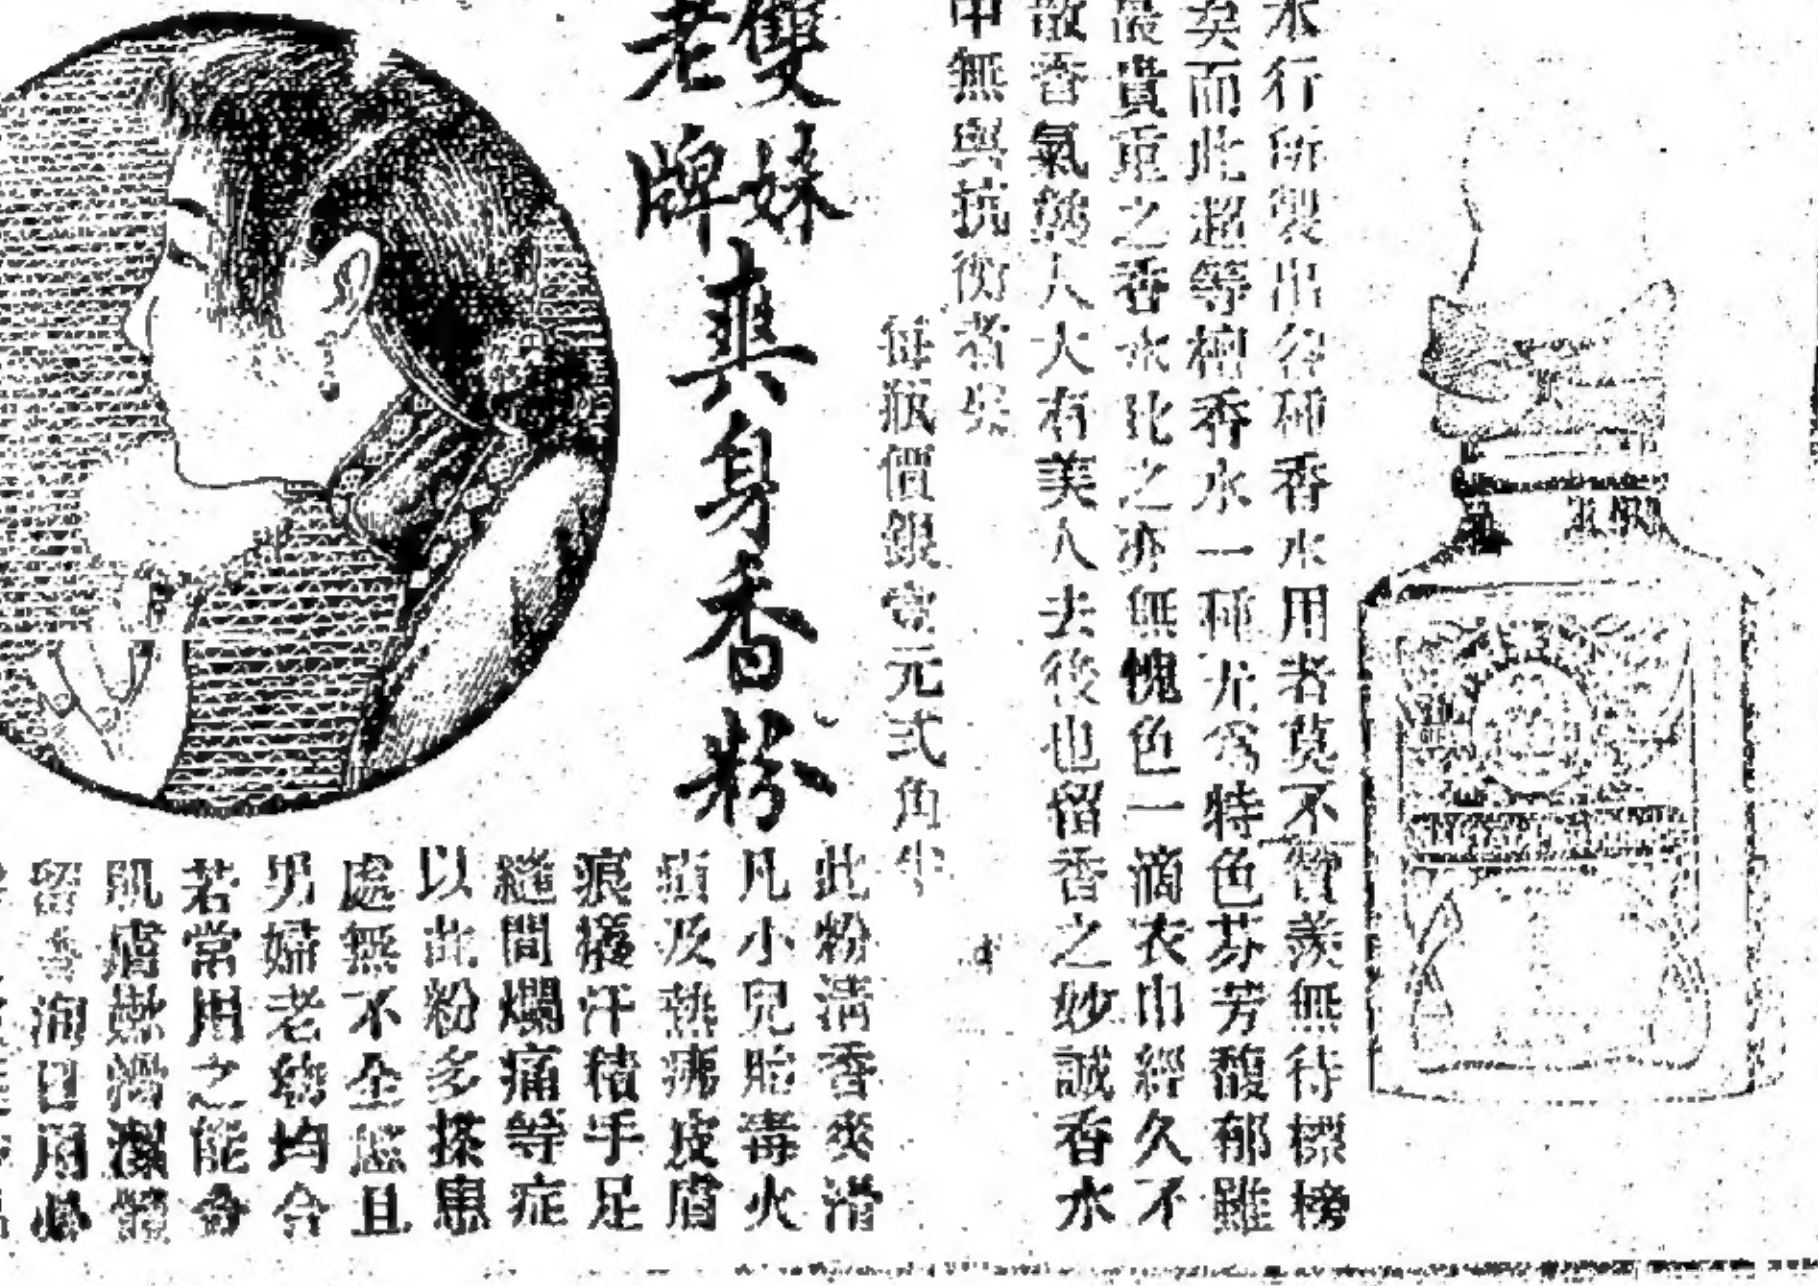 本行所製出各種香水用者莫不贊羨無待標榜
矣而此超等檀香水一種尤為特色芬芳馥郁雖
最貴重之香水比之亦無愧色一滴衣巾經久不
散香氣襲人大有美人去後也留香之妙誠香水
中無與抗衡者矣
每瓶價銀壹元弍角半
雙妹
老牌
爽身香粉
此粉清香爽滑
凡小兒胎毒火
瘡及熱痱皮膚
痕癢汗積手足
縫間爛痛等症
以此粉多搽患
處無不全愈且
男婦老幼均合
若常用之能令
肌膚嫩滑潔體
留香洵日用必